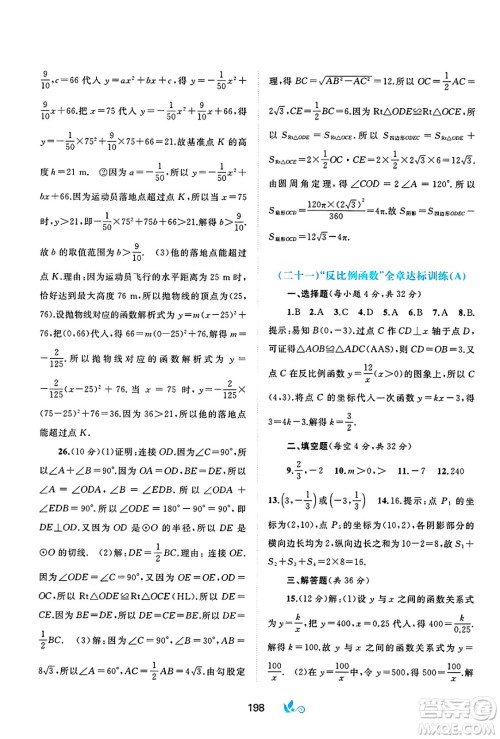 9/10, c=66 代入 y=ax²+bx+c, 得 y=-1/50x²+
9/10x+66. 把 x=75 代入 y=-1/50x²+9/10x+66,
得 y=-1/50×75²+9/10×75+66=21. 故基准点 K 的高
度 h=21 m. ②因为运动员落地点超过点 K, 所以
x=75 时, y>21, 即 -1/50×75²+75b+66>21. 解得
b>9/10. 故 b 的取值范围为 b>9/10. (3)他的落地点能
超过点 K. 因为运动员飞行的水平距离为 25 m 时,
恰好达到最大高度 76 m, 所以抛物线的顶点为(25,
76). 设抛物线对应的函数解析式为 y=m(x-25)²+
76. 把(0,66)代入, 得 66=m(0-25)²+76. 解得 m=
-2/125. 所以抛物线对应的函数解析式为 y=
-2/125(x-25)²+76. 当 x=75 时, y=-2/125×
(75-25)²+76=36. 因为 36>21, 所以他的落地点
能超过点 K.
26.(10 分)(1)证明: 连接 OD. 因为∠C=90°,
所以∠A+∠B=90°. 因为 OA=OD, 所以∠A=
∠ODA. 又∠BDE=∠A, 所以∠BDE=∠ODA. 因
为∠ODA+∠ODB=90°, 所以∠BDE+∠ODB=
90°. 所以∠ODE=90°. 所以 OD⊥DE. 故 DE 是⊙O
的切线. (2)解: DE=1/2BC. 理由如下: 连接 OE.
因为∠ODE=∠OCE=90°, OE=OE, OD=OC,
所以 Rt△ODE≌Rt△OCE(HL). 所以 DE=CE.
因为∠BDE=∠A, ∠A+∠B=90°, 所以∠BDE+
∠B=90°. 所以 DE=BE. 所以 BE=CE. 故 DE=
1/2BC. (3)解: 因为 ∠ACB=90°, ∠B=30°, AB=
8√3, 所以 ∠A=60°, AC=1/2AB=4√3. 由勾股定
理, 得 BC=√(AB²-AC²)=12. 所以 OC=1/2AC=
2√3, CE=1/2BC=6. 因为 Rt△ODE≌Rt△OCE, 所
以 S Rt△ODE=S Rt△OCE. 所以 S四边形ODEC=2S Rt△OCE=
2×1/2CE·OC=2×1/2×6×2√3=12√3. 因为∠A=60°,
由圆周角定理, 得∠COD=2∠A=120°. 所以
S扇形OCD=120π×(2√3)²/360=4π. 所以 S阴影=S四边形ODEC
-S扇形OCD=12√3-4π.
(二十一)“反比例函数”全章达标训练(A)
一、选择题(每小题 4 分, 共 32 分)
1.B 2.A 3.C 4.D 5.A 6.D 7.C 8.B
提示: 易得 A(1,0), B(0,3). 过点 C 作 CD⊥x 轴于点 D,
可证△AOB≌△CDA(AAS), 可得 C(4,1). 又因为
点 C 在反比例函数 y=12/x(x>0)的图象上, 所以 C
(4,3). 将点 C 的坐标代入一次函数 y=kx-3, 得
3=4k-3. 解得 k=3/2.
二、填空题(每空 4 分, 共 32 分)
9.3/x, -2 10.-2 11.-7 12.240
13.(3,-1/3) (-3,1/3) 14.16. 提示: 点 P₁ 的
坐标为(2,8), 各阴影部分均为矩形, 且各阴影矩形的
水平边长之和为 2, 竖直边长之和为 8, 故 S₁
+S₂+S₃+…+Sₙ=2×8=16.
三、解答题(共 36 分)
15.(12 分)解:(1)设 y 与 x 之间的函数关系式
为 y=k/x. 由题意知 x=0.25 时, y=400, 故 400=k/0.25.
解得 k=100. 所以 y 与 x 之间的函数关系式为 y=
100/x. (2)在 y=100/x 中, 当 y=1000 时, 1000=100/x. 解
198